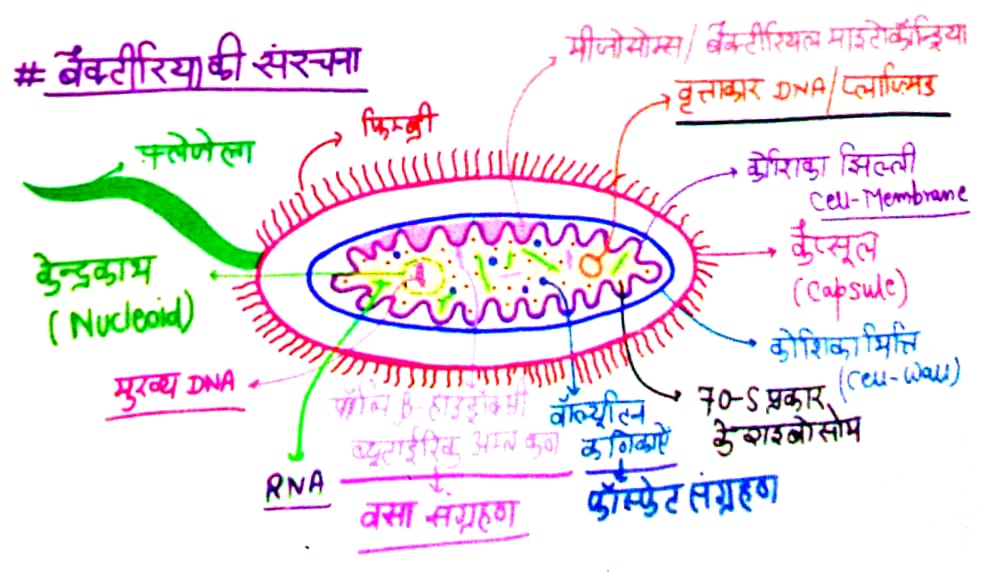 # बैक्टीरिया की संरचना
मीजोसोम्स/ बैक्टीरियल माइटोकॉन्ड्रिया
वृत्ताकार DNA/प्लाज्मिड
फिम्ब्री
फ्लेजेला
कोशिका झिल्ली
Cell-Membrane
केन्द्रकाभ
(Nucleoid)
कैप्सूल
(Capsule)
कोशिका भित्ति
(Cell-Wall)
मुख्य DNA
70-S प्रकार
के राइबोसोम
पॉलि β-हाइड्रॉक्सी
ब्यूटाईरिक अम्ल कण
वसा संग्रहण
वॉल्यूटिन
कणिकाऐं
फॉस्फेट संग्रहण
RNA